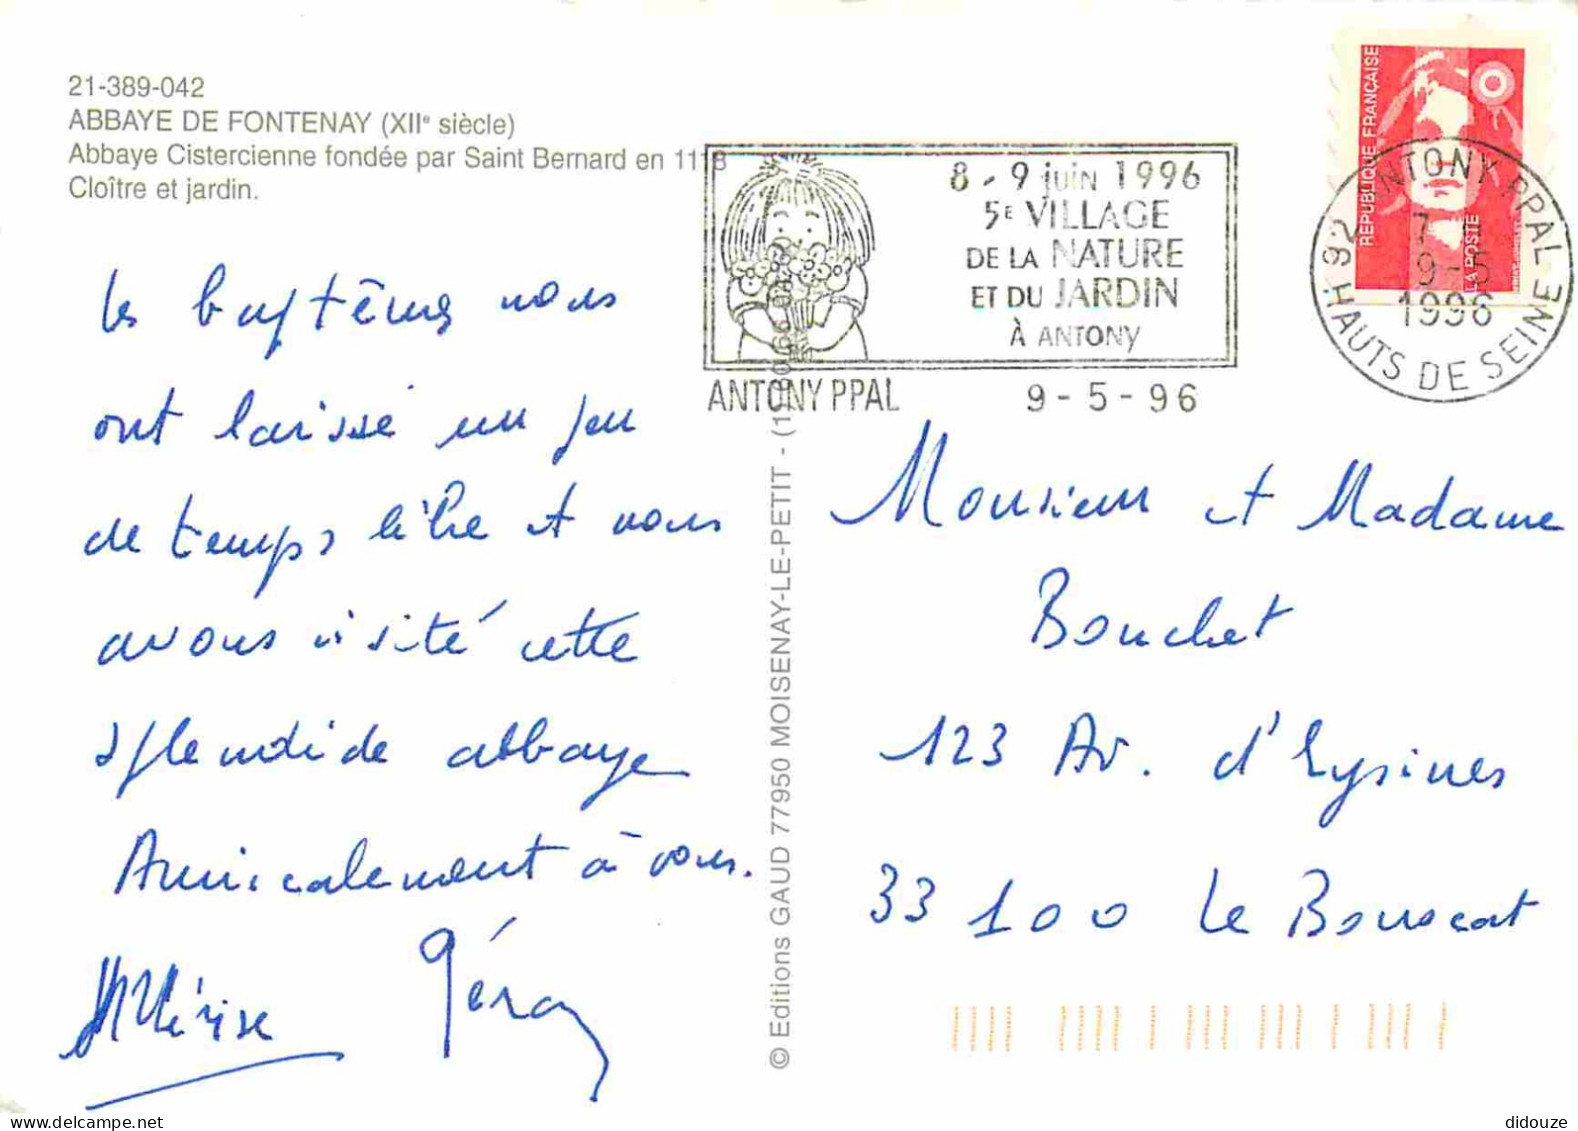 21-389-042
ABBAYE DE FONTENAY (XIIe siècle)
Abbaye Cistercienne fondée par Saint Bernard en 1118
Cloître et jardin.
les baptêmes nous
ont laissé un peu
de temps libre et nous
avons visité cette
splendide abbaye
Amicalement à vous.
Gérard
© Editions GAUD 77950 MOISENAY-LE-PETIT - (1)
8 - 9 juin 1996
5E VILLAGE
DE LA NATURE
ET DU JARDIN
À ANTONY
ANTONY PPAL 9 - 5 - 96
RÉPUBLIQUE FRANÇAISE
LA POSTE
92 ANTONY PPAL
9-5
1996
HAUTS DE SEINE
Monsieur et Madame
Bouchet
123 Av. d'Eysines
33 100 Le Bouscat
didouze